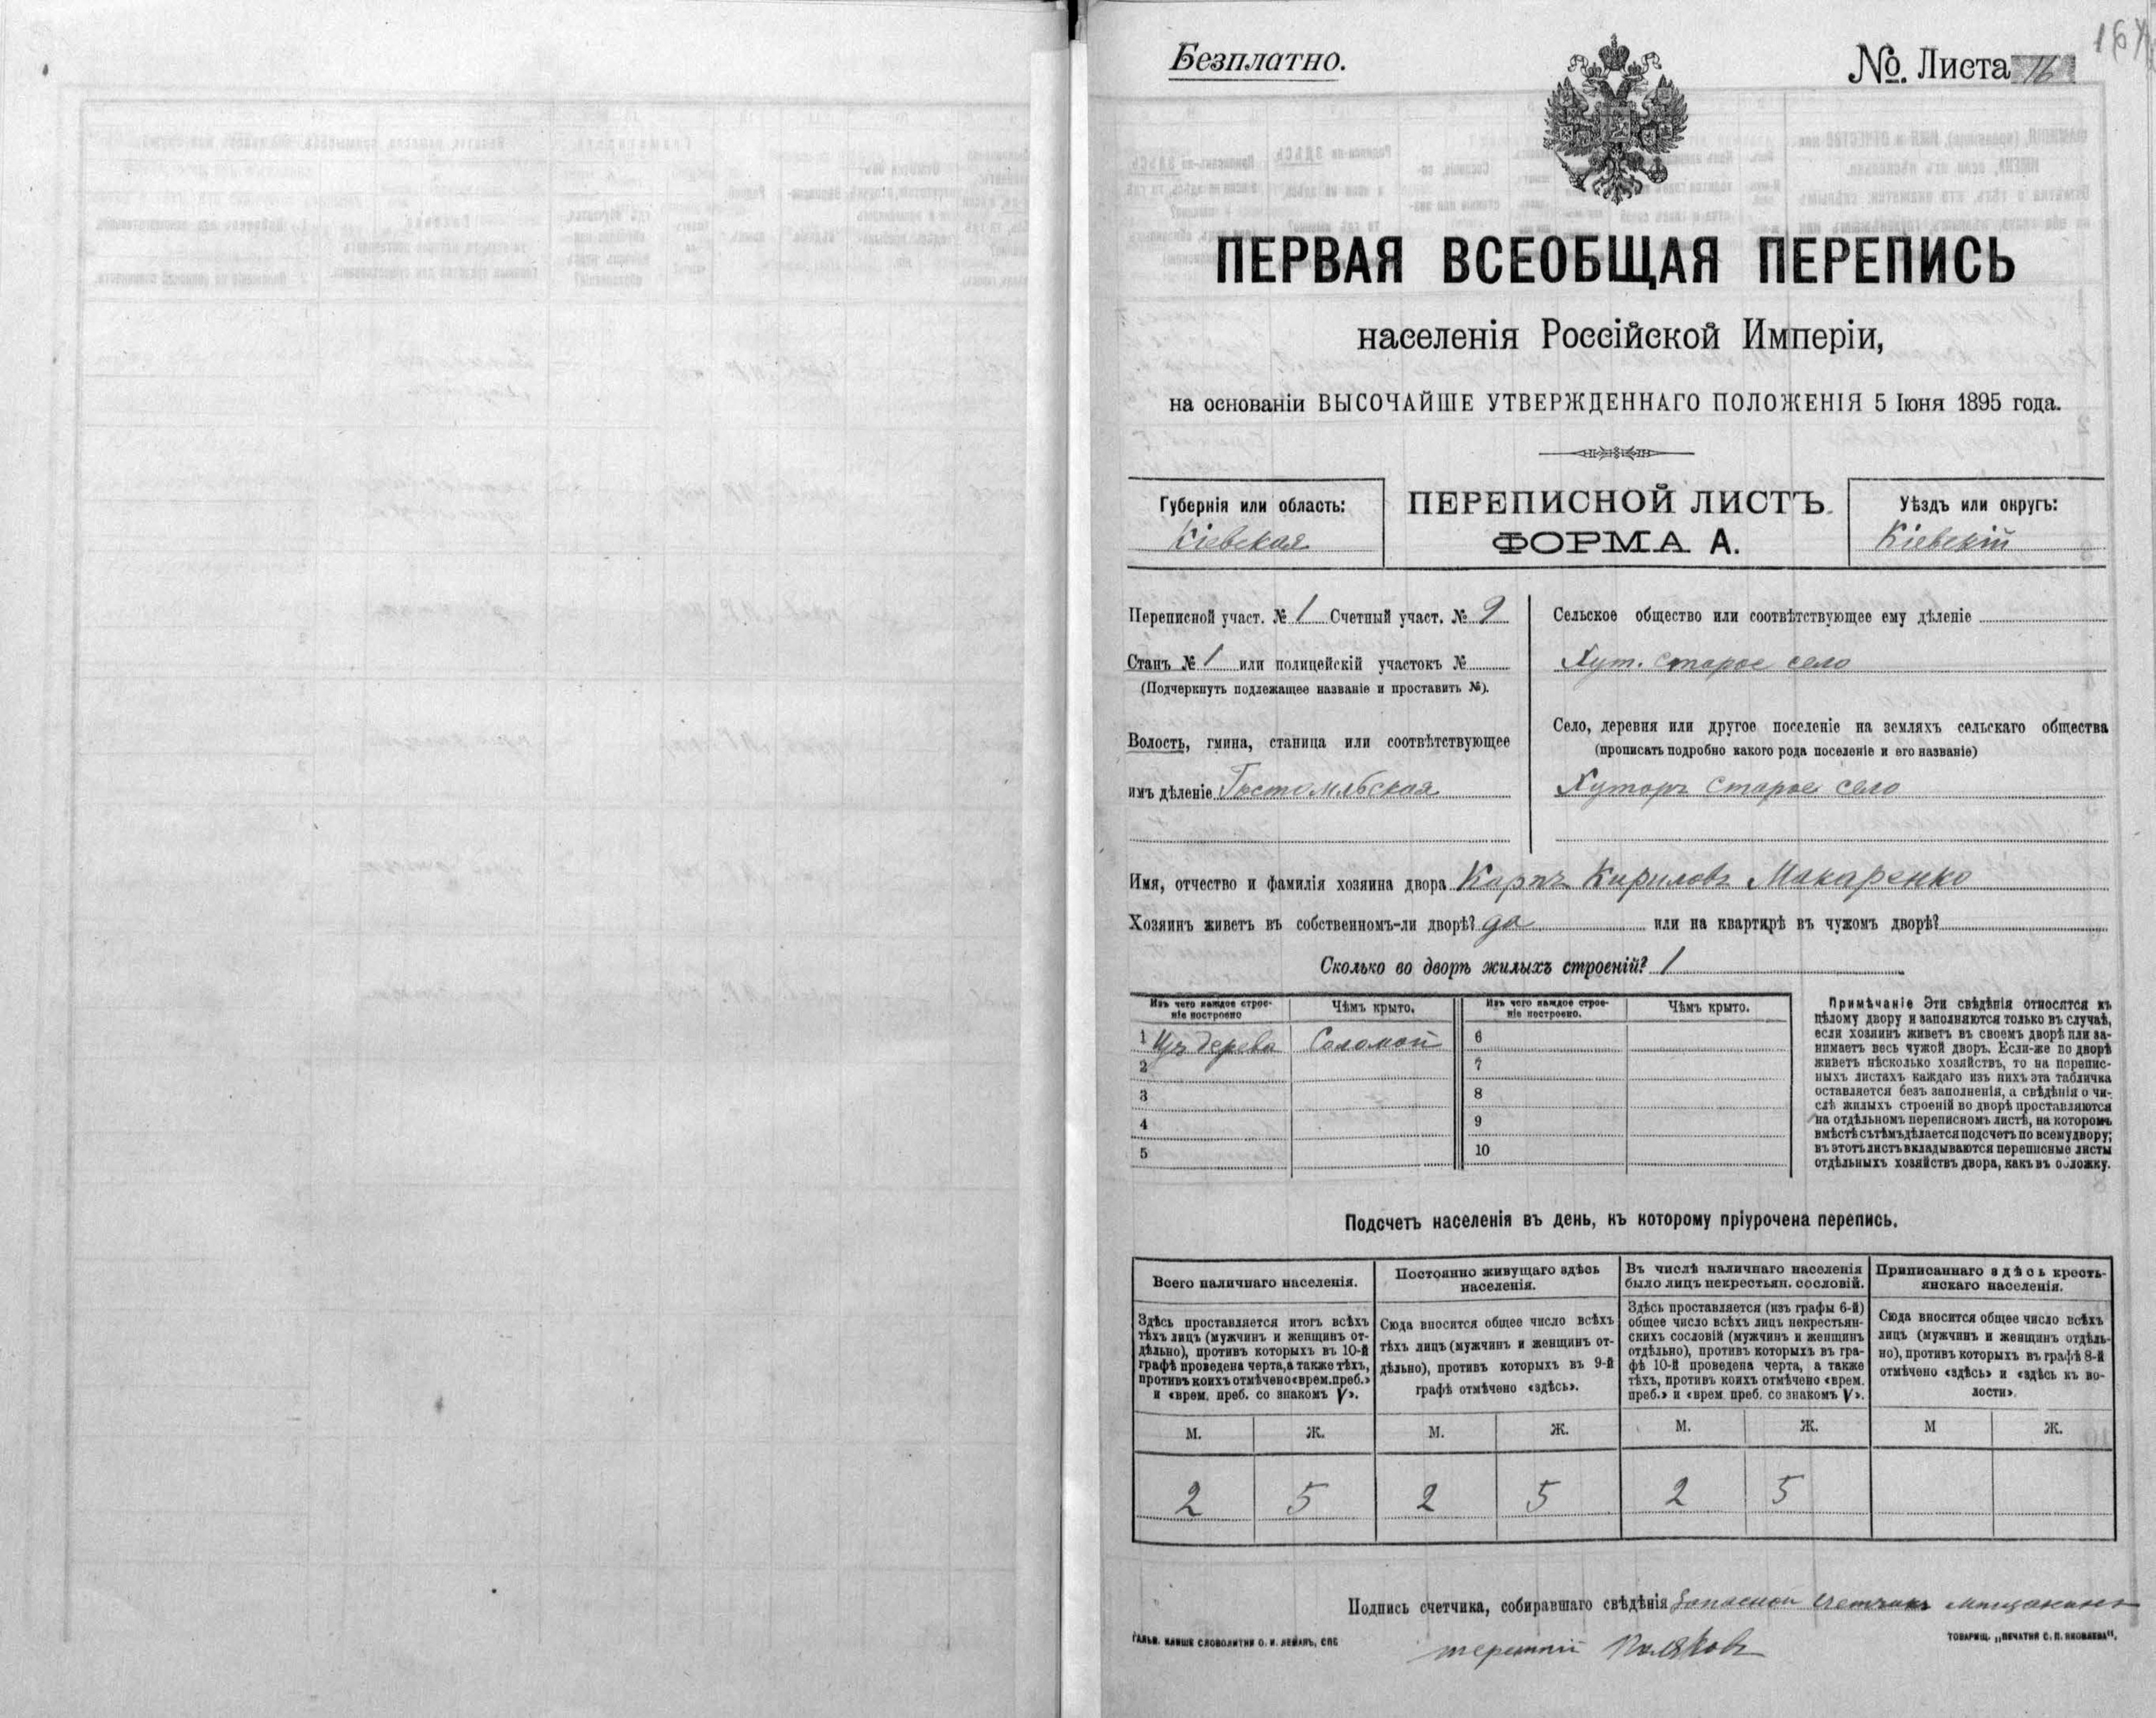 Безплатно.
№. Листа 16
167
ПЕРВАЯ ВСЕОБЩАЯ ПЕРЕПИСЬ
населенія Россійской Имперіи,
на основаніи ВЫСОЧАЙШЕ УТВЕРЖДЕННАГО ПОЛОЖЕНІЯ 5 Іюня 1895 года.
Губернія или область:
Кіевская
ПЕРЕПИСНОЙ ЛИСТЪ
ФОРМА А.
Уѣздъ или округъ:
Кіевскій
Переписной участ. № 1 Счетный участ. № 9
Станъ № 1 или полицейскій участокъ №
(Подчеркнуть подлежащее названіе и проставить №).
Волость, гмина, станица или соотвѣтствующее
имъ дѣленіе Гостомльская
Сельское общество или соотвѣтствующее ему дѣленіе
Хут. Старое село
Село, деревня или другое поселеніе на земляхъ сельскаго общества
(прописать подробно какого рода поселеніе и его названіе)
Хуторъ Старое село
Имя, отчество и фамилія хозяина двора Карпъ Кириловъ Макаренко
Хозяинъ живетъ въ собственномъ-ли дворѣ? да или на квартирѣ въ чужомъ дворѣ?
Сколько во дворѣ жилыхъ строеній? 1
Изъ чего каждое строе-
ніе построено
Чѣмъ крыто.
Изъ чего каждое строе-
ніе построено.
Чѣмъ крыто.
1 Изъ дерева Соломой 6
2 7
3 8
4 9
5 10
Примѣчаніе Эти свѣдѣнія относятся къ
цѣлому двору и заполняются только въ случаѣ,
если хозяинъ живетъ въ своемъ дворѣ или за-
нимаетъ весь чужой дворъ. Если-же во дворѣ
живетъ нѣсколько хозяйствъ, то на перепис-
ныхъ листахъ каждаго изъ нихъ эта табличка
оставляется безъ заполненія, а свѣдѣнія о чи-
слѣ жилыхъ строеній во дворѣ проставляются
на отдѣльномъ переписномъ листѣ, на которомъ
вмѣстѣ съ тѣмъ дѣлается подсчетъ по всему двору;
въ этотъ листъ вкладываются переписные листы
отдѣльныхъ хозяйствъ двора, какъ въ обложку.
Подсчетъ населенія въ день, къ которому пріурочена перепись.
Всего наличнаго населенія.
Здѣсь проставляется итогъ всѣхъ
тѣхъ лицъ (мужчинъ и женщинъ от-
дѣльно), противъ которыхъ въ 10-й
графѣ проведена черта, а также тѣхъ,
противъ коихъ отмѣчено «врем. преб.»
и «врем. преб. со знакомъ V».
Постоянно живущаго здѣсь
населенія.
Сюда вносится общее число всѣхъ
тѣхъ лицъ (мужчинъ и женщинъ от-
дѣльно), противъ которыхъ въ 9-й
графѣ отмѣчено «здѣсь».
Въ числѣ наличнаго населенія
было лицъ некрестьян. сословій.
Здѣсь проставляется (изъ графы 6-й)
общее число всѣхъ лицъ некрестьян-
скихъ сословій (мужчинъ и женщинъ
отдѣльно), противъ которыхъ въ гра-
фѣ 10-й проведена черта, а также
тѣхъ, противъ коихъ отмѣчено «врем.
преб.» и «врем. преб. со знакомъ V».
Приписаннаго здѣсь кресть-
янскаго населенія.
Сюда вносится общее число всѣхъ
лицъ (мужчинъ и женщинъ отдѣль-
но), противъ которыхъ въ графѣ 8-й
отмѣчено «здѣсь» и «здѣсь къ во-
лости».
М. Ж. М. Ж. М. Ж. М Ж.
2 5 2 5 2 5
Подпись счетчика, собиравшаго свѣдѣнія Запасной Счетчикъ мѣщанинъ
терентій Поляковъ
ГАЛЬВ. КЛИШЕ СЛОВОЛИТНИ О. И. ЛЕМАНЪ, СПБ
ТОВАРИЩ. „ПЕЧАТНЯ С. П. ЯКОВЛЕВА".